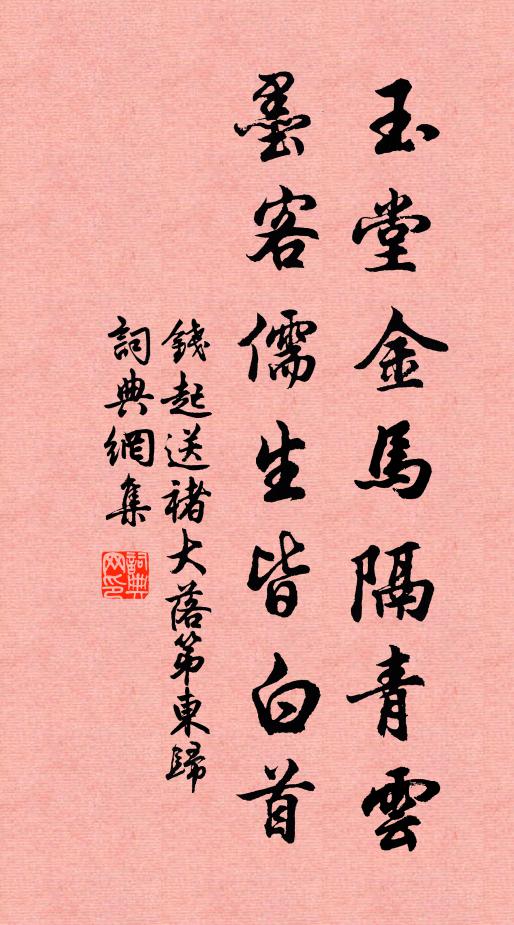 玉堂金馬隔青雲
墨客儒生皆白首
錢起送褚大落第東歸
詞典網集
詞典網印